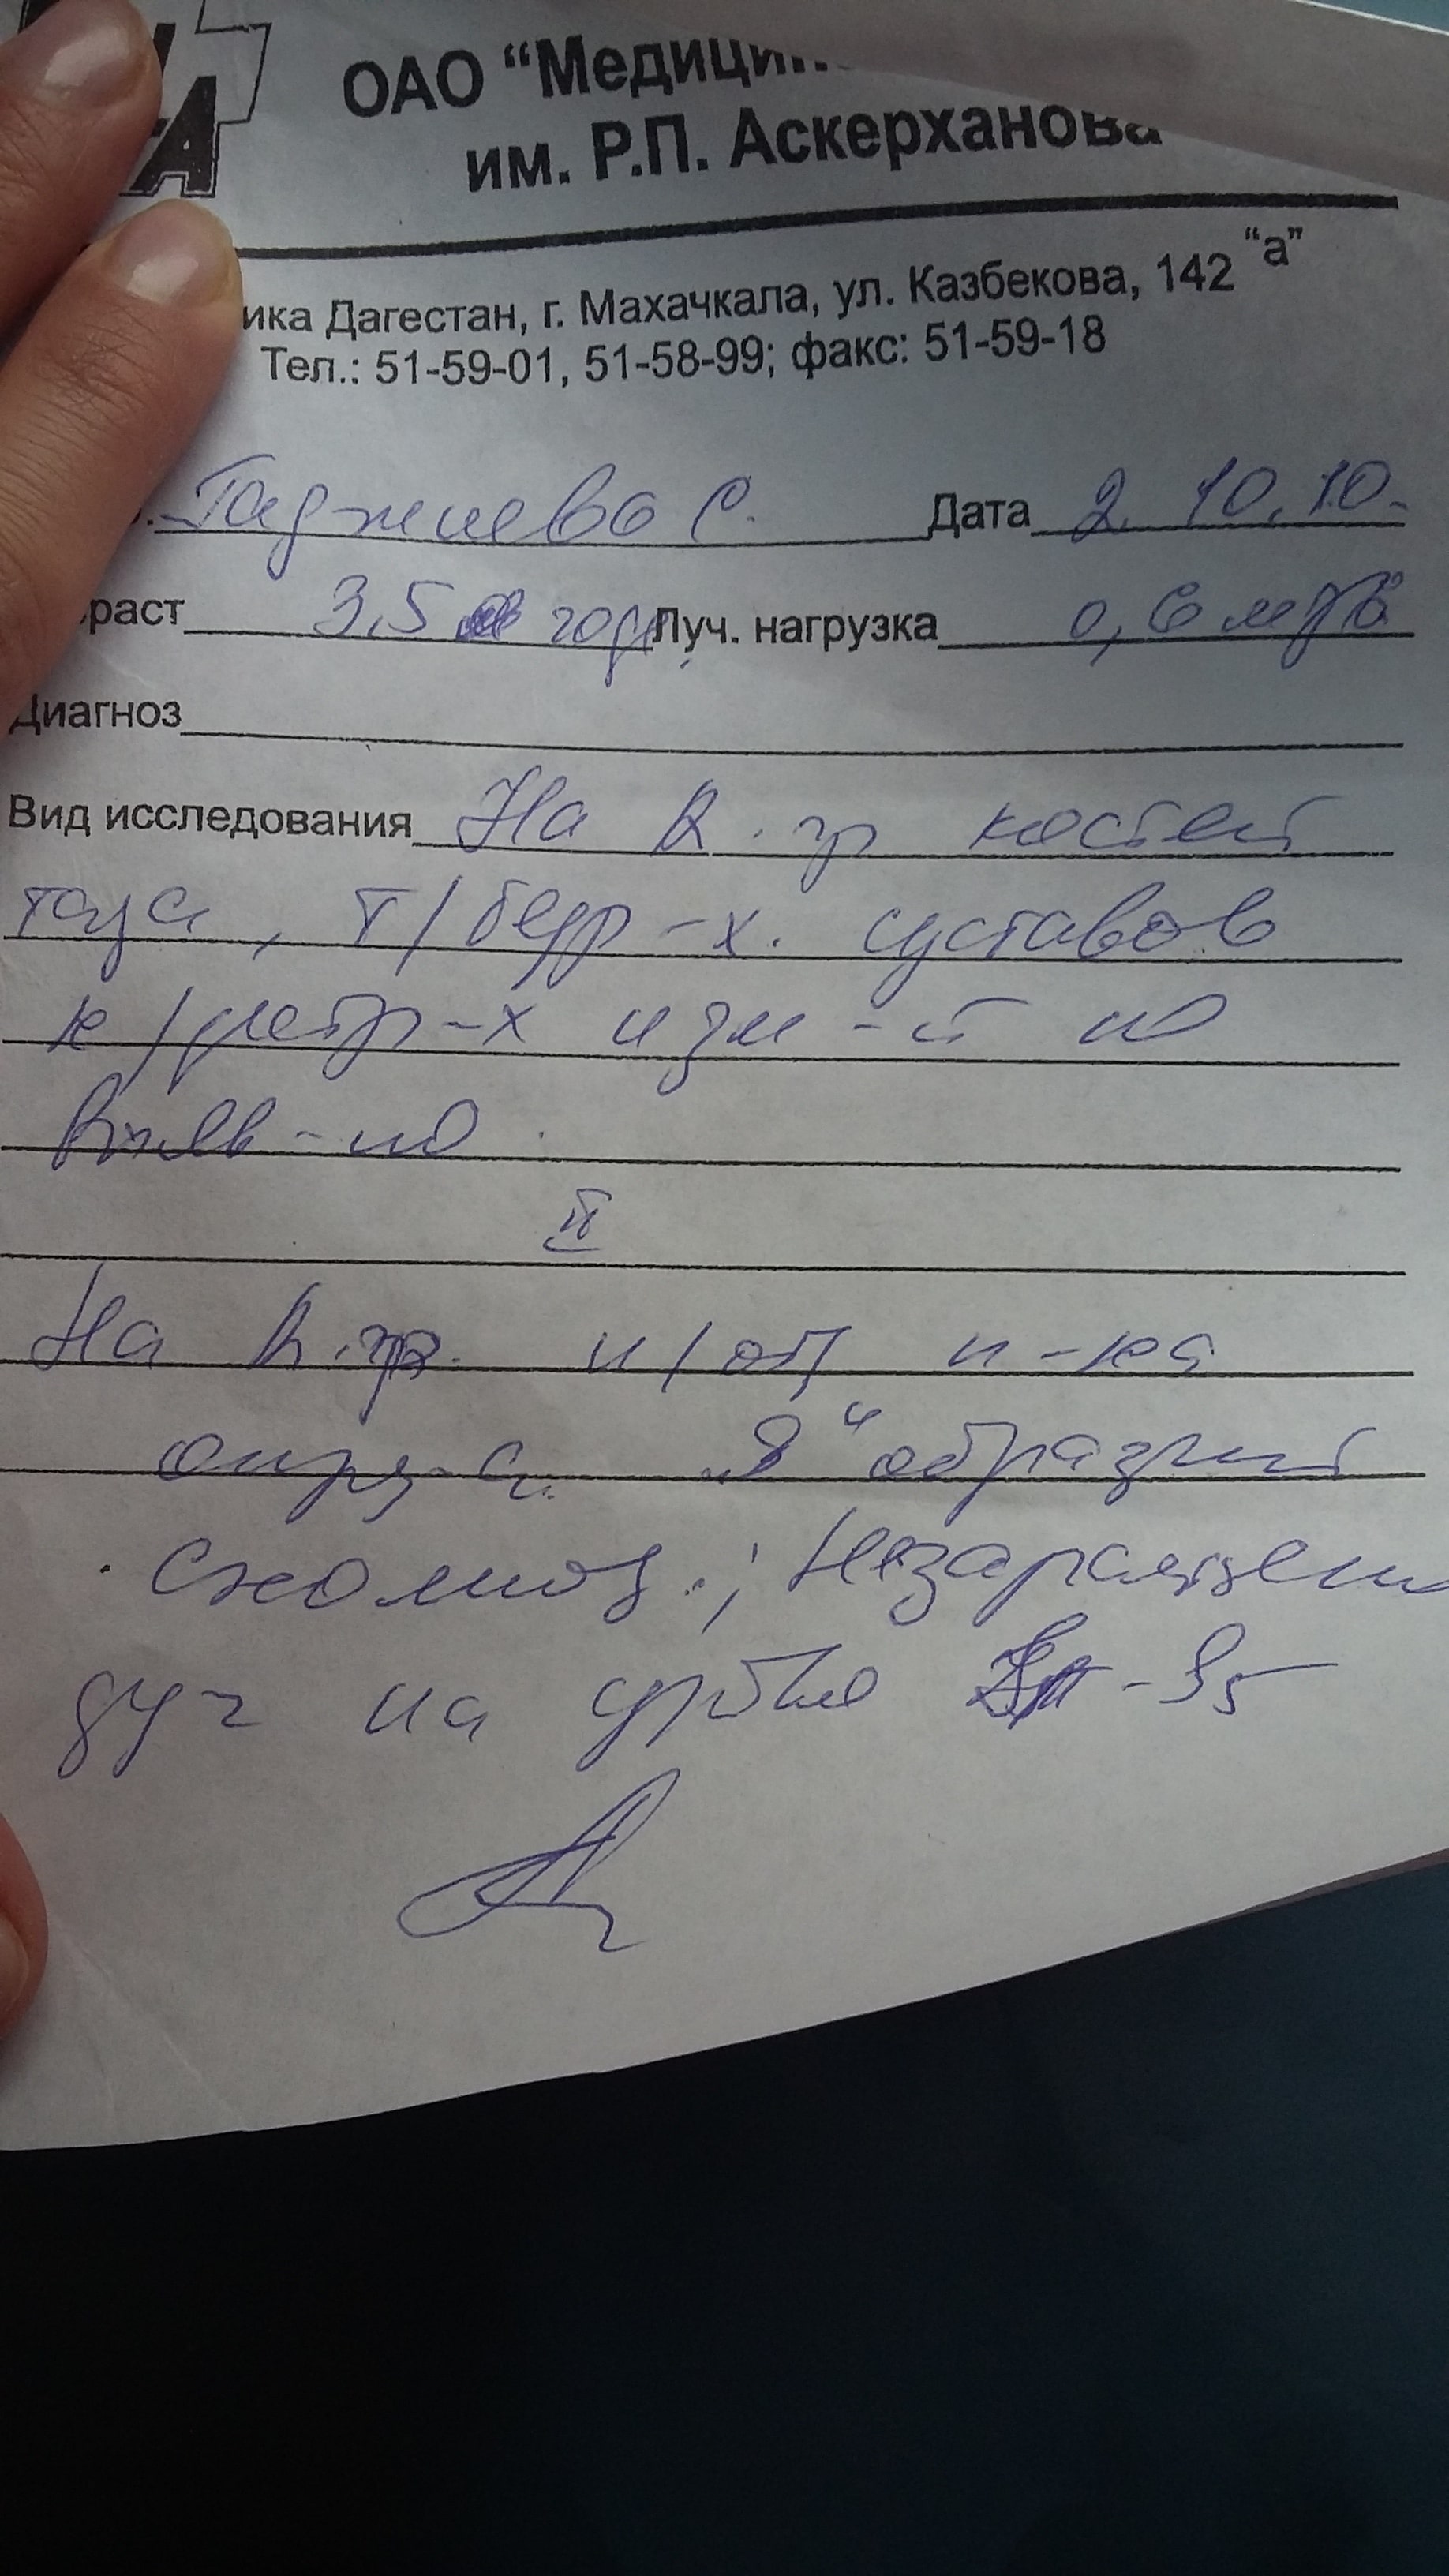 ОАО “Медицин
им. Р.П. Аскерханова
ика Дагестан, г. Махачкала, ул. Казбекова, 142 “а”
Тел.: 51-59-01, 51-58-99; факс: 51-59-18
Гаджиева С. Дата 2. 10. 10.
раст 3,5 года Луч. нагрузка 0,6 мзв
Диагноз
Вид исследования На R. гр костей
таза, т/бедр-х. суставов
к/дестр-х изм-й не
выяв-но.
II
На R.гр. п/оп п-ка
опред-с. „S“ образный
сколиоз.; Незаращение
дуг на уровне - S5